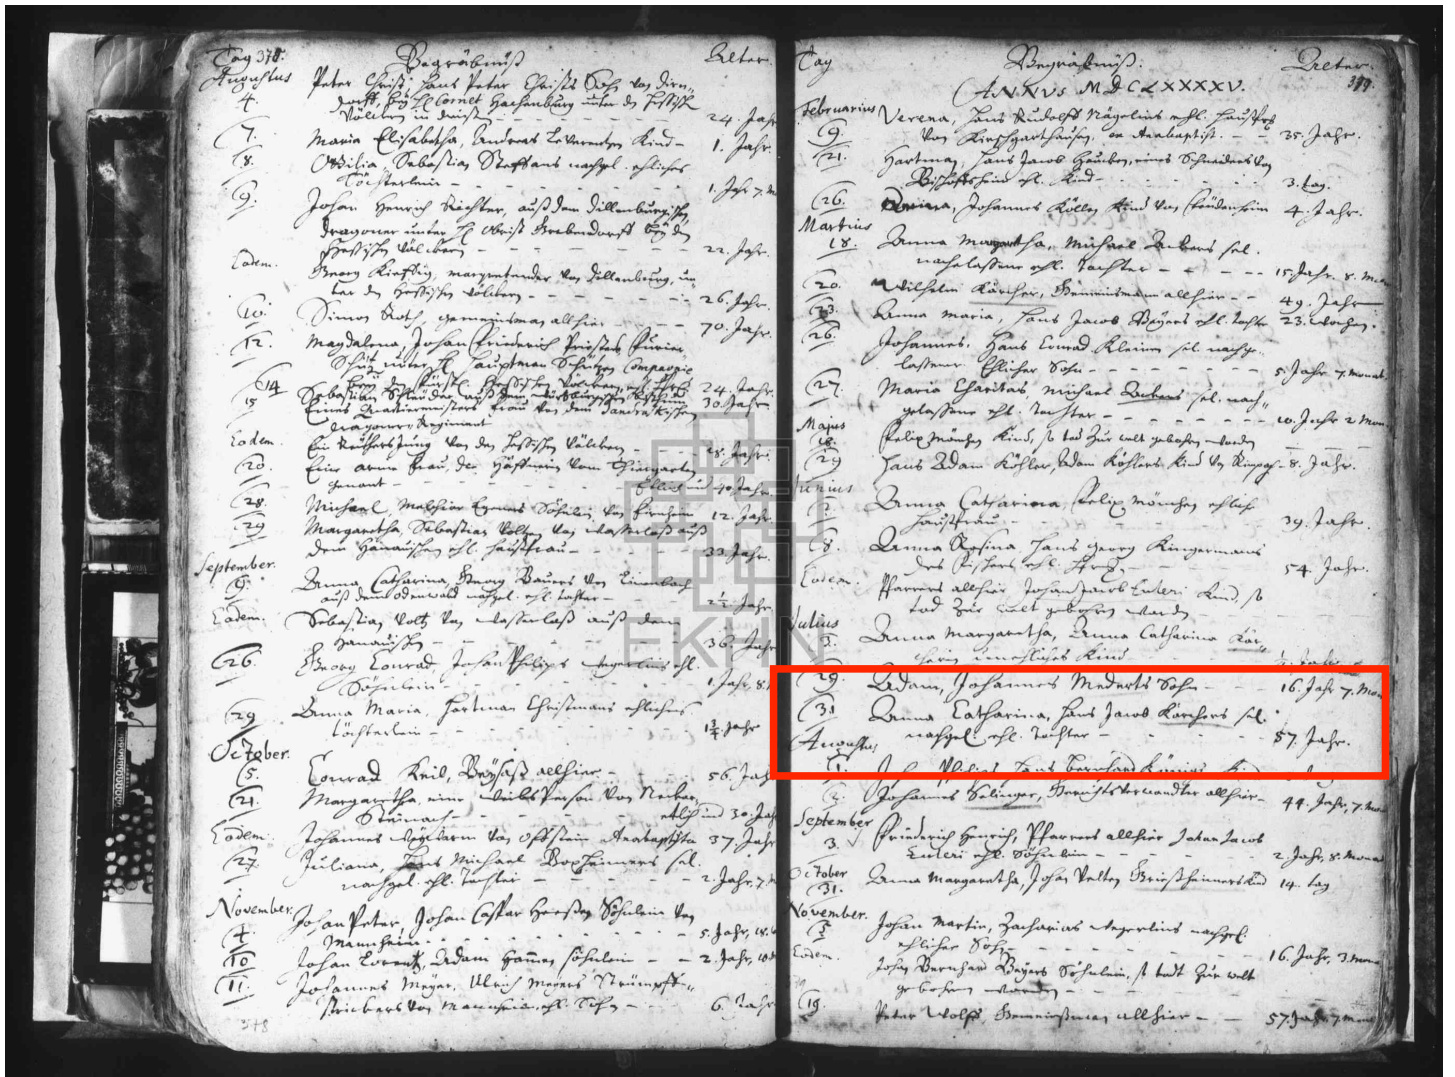 Tag 378. Begräbnuß Alter.
Augustus
4. Peter Christ, Hans Peter Christs Sohn von
Cornet Hachenburg unter den Hessischen
Völckern in - - 24. Jahr
7. Maria Elisabetha, Andreas Kind - 1. Jahr.
8. Ottilia Sebastian Steffans nachgel. ehliches
Töchterlein - - 1. Jahr 7. M
9. Johan Henrich Richter, auß dem Dillenburgischen
Dragoner unter H. Obrist
Hessischen Völckern - - 22. Jahr.
Eodem. Georg von Dillenburg, un-
ter den Hessischen Völckern - - 26. Jahr.
10. Simon Roth, gemeinsman allhier - - 70. Jahr.
12. Magdalena, Johan Friederich
unter H. Hauptman Compagnie
Hessischen Völckern, 24. Jahr.
14
15 Sebastian 30. Jahr
Eines Quartiermeisters frau von dem
Dragoner Regiment
Eodem. Ein von den Hessischen Völckern - - 18. Jahr.
20. Eine arme frau, die vom Thiergarten
genant - - 40. Jahr.
28. Michael, Melchior Söhnlein von - 12. Jahr.
29 Margaretha, Sebastian Voltz von Wasserloß auß
dem Hanauischen ehl. haußfrau - - 33 Jahr.
September.
9. Anna Catharina, Georg Bauers von
auß dem Odenwald nachgel. ehl. tochter - - 2½. Jahr.
Eodem. Sebastian Voltz von Wasserloß auß dem
Hanauischen - - 36. Jahr
26. Georg Conrad, Johan Philips Wegerlins ehl.
Söhnlein - - 1. Jahr, 8.
29 Anna Maria, Hartman Christmans ehliches
Töchterlein - - Jahr
October.
5. Conrad Keil, Beysaß allhier - 56. Jahr
21. Margaretha, eine Weibs Person von Neckar
Steinach - - 30. Jahr
Eodem. Johannes von Offstein Anabaptista 37. Jahr
27. Juliana, Hans Michael Boxheimers sel.
nachgel. ehl. Tochter - - 2. Jahr, 7. M
November.
4. Johan Peter, Johan Caspar Söhnlein von
Mannheim - - 5. Jahr, 18.
10 Johan Lorentz, Adam Hamen söhnlein - - 2. Jahr, 10
11. Johannes Meyer, Ulrich Meyers Strümpff-
strickers von Mannheim ehl. Sohn - - 6. Jahr
378
Tag Begräbnuß. Alter.
379.
ANNUS MDCLXXXXV.
Februarius
9. Verena, Hans Rudolff Nägelins ehl. haußfrau
von Kirschgarthausen, ein Anabaptist. - - 35. Jahr.
21. Hartman, Hans Jacob eines Schneiders von
Bischoffsheim ehl. Kind - - 3. tag.
26. Johannes Köllen Kind von Freudenheim 4. Jahr.
Martius
18. Anna Margretha, Michael Ackers sel.
nachelassene ehl. Tochter - - 15. Jahr. 8. Mon
20. Wilhelm Kärcher, Gemeinsmann allhier - - 49. Jahr
23. Anna Maria, Hans Jacob Beyers ehl. tochter 23. wochen.
26. Johannes, Hans Conrad Kleinen sel. nachge-
lassener Ehlicher Sohn - - 5. Jahr 7. monat.
27. Maria Charitas, Michael Ackers sel. nach-
gelassene ehl. Tochter - - 10. Jahr 2 Mon.
Majus
18. Felix Mönchen Kind, so tod zur welt gebohren worden
29 Hans Adam Köhler, Adam Köhlers Kind - 8. Jahr.
Junius
7. Anna Catharina, Felix Mönchen ehliche
haußfrau - - 39. Jahr.
8. Anna Rosina, Hans Georg Ringermans
des Fischers ehl. - 54. Jahr.
Eodem. Pfarrers allhier Johan Jacob Euleri Kind, so
tod zur welt gebohren worden
Julius
5. Anna Margaretha, Anna Catharina Kär
cherin unehliches Kind - - Jahr
EKHN
29. Adam, Johannes Mederts Sohn - - 16. Jahr 7. Mon
31 Anna Catharina, Hans Jacob Kärchers sel.
nachgel. ehl. Tochter - - 57. Jahr.
Augustus
1. Joh. Philips, Hans Bernhard Königs Kind
2. Johannes Selinger, Gerichts Verwandter allhier - 44. Jahr, 7. Mon
September
3. Friederich Henrich, Pfarrers allhier Johan Jacob
Euleri ehl. Söhnlein - - 2. Jahr, 8. Mona
October
31. Anna Margaretha, Johan Velten Grießheimers Kind 14. tag
November.
5 Johan Martin, Zacharias Wegerlins nachgel.
ehlicher Sohn - - 16. Jahr, 3. mona
Eodem. Johan Bernhard Beyers Söhnlein, so todt zur welt
gebohren worden - -
19. Peter Wolff, Gemeinßman allhier - - 57. Jahr 7. mona